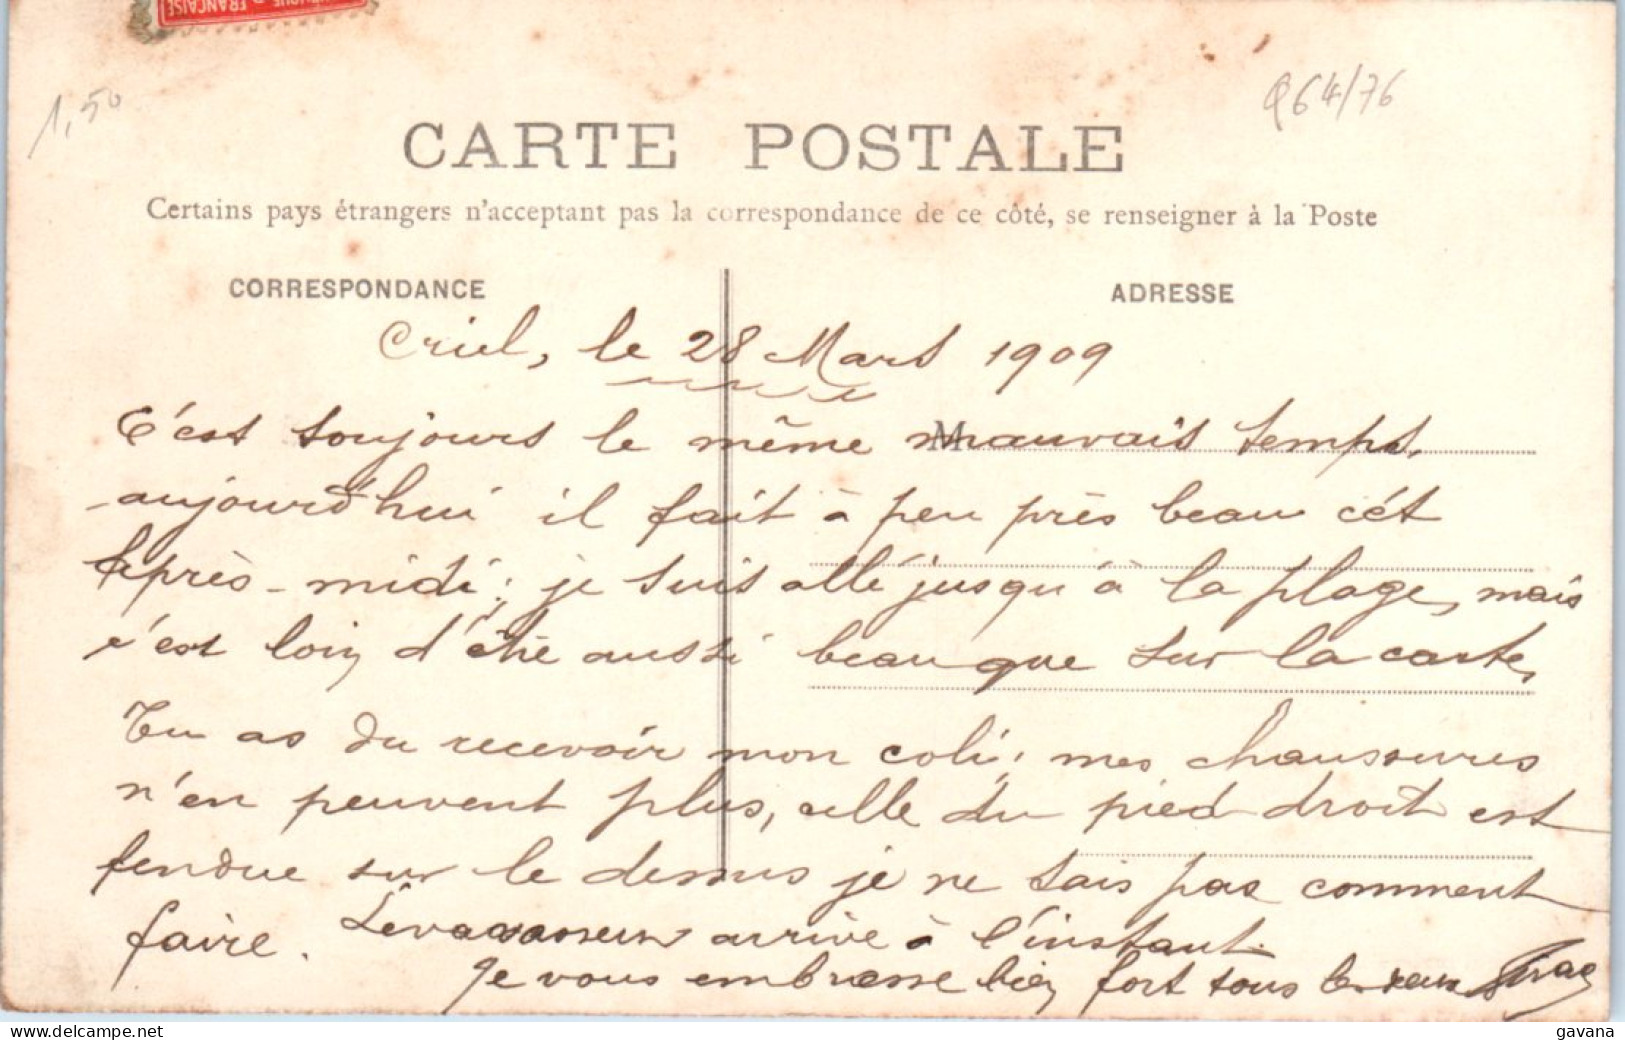 1,50
Q64/76
CARTE POSTALE
Certains pays étrangers n'acceptant pas la correspondance de ce côté, se renseigner à la Poste
CORRESPONDANCE
ADRESSE
Criel, le 28 Mars 1909
C'est toujours le même mauvais temps,
M
aujourd'hui il fait à peu près beau cét
après-midi; je suis allé jusqu'à la plage, mais
c'est loin d'être aussi beau que sur la carte,
Tu as du recevoir mon coli; mes chaussures
n'en peuvent plus, celle du pied droit est
fendue sur le dessus je ne sais pas comment
faire. Levavasseur arrive à l'instant.
Je vous embrasse bien fort tous les deux
gavana